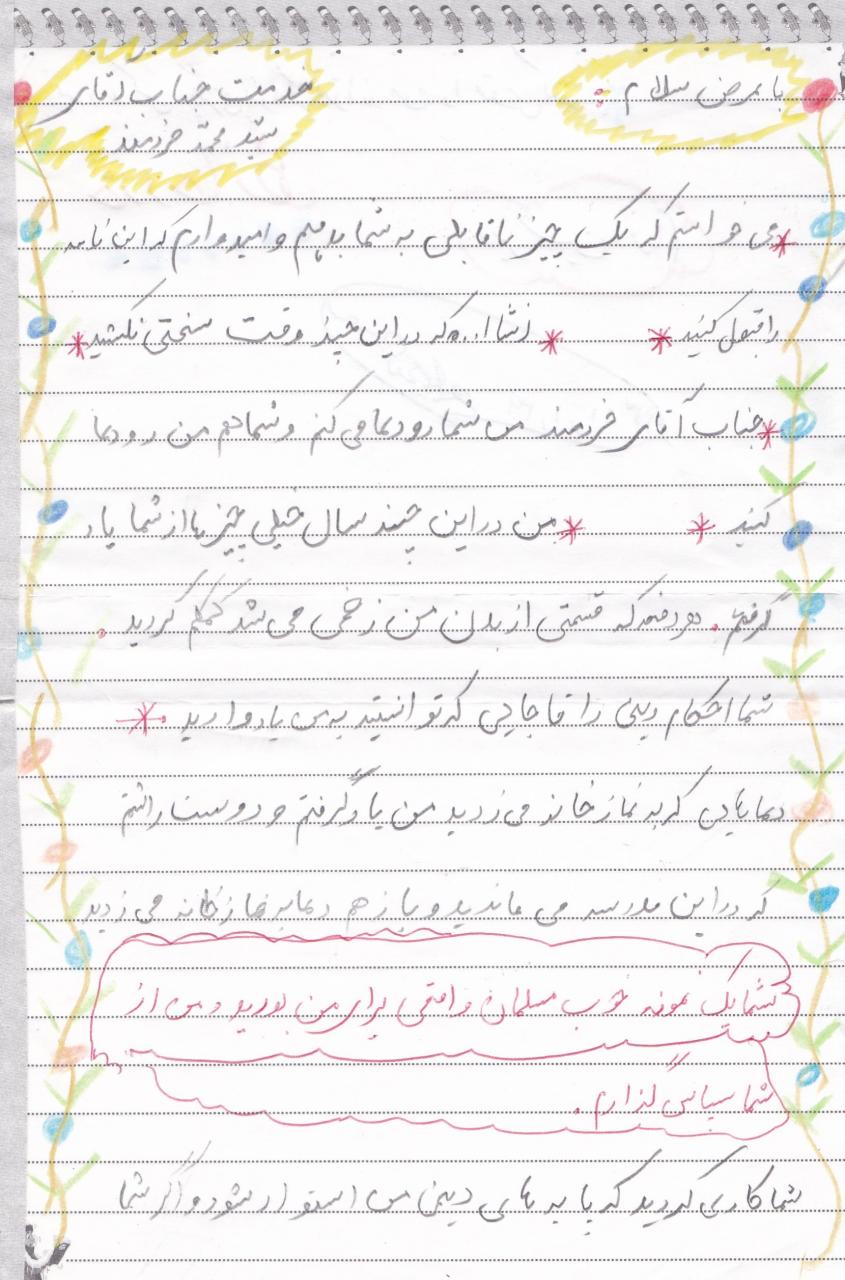 با عرض سلام :
خدمت جناب آقای
سید محمد خردمند
می خواستم که یک چیز ناقابلی به شما بدهم و امیدوارم که این نامه
را قبول کنید انشاا... که در این چند وقت سختی نکشید
جناب آقای خردمند من شما رو دعا می کنم و شما هم من رو دعا
کنید من در این چند سال خیلی چیزها از شما یاد
گرفتم . هر دفعه که قسمتی از بدن من زخمی می شد کمکم کردید .
شما احکام دینی را تا جایی که توانستید به من یاد دادید .
دعا هایی که به نماز خانه می زدید من یاد گرفتم و دوست داشتم
که در این مدرسه می ماندید و باز هم دعا به نماز خانه می زدید
شما یک نمونه خوب مسلمان واقعی برای من بودید و من از
شما سپاس گذارم .
شما کاری کردید که پایه های دینی من استوار شود و اگر شما